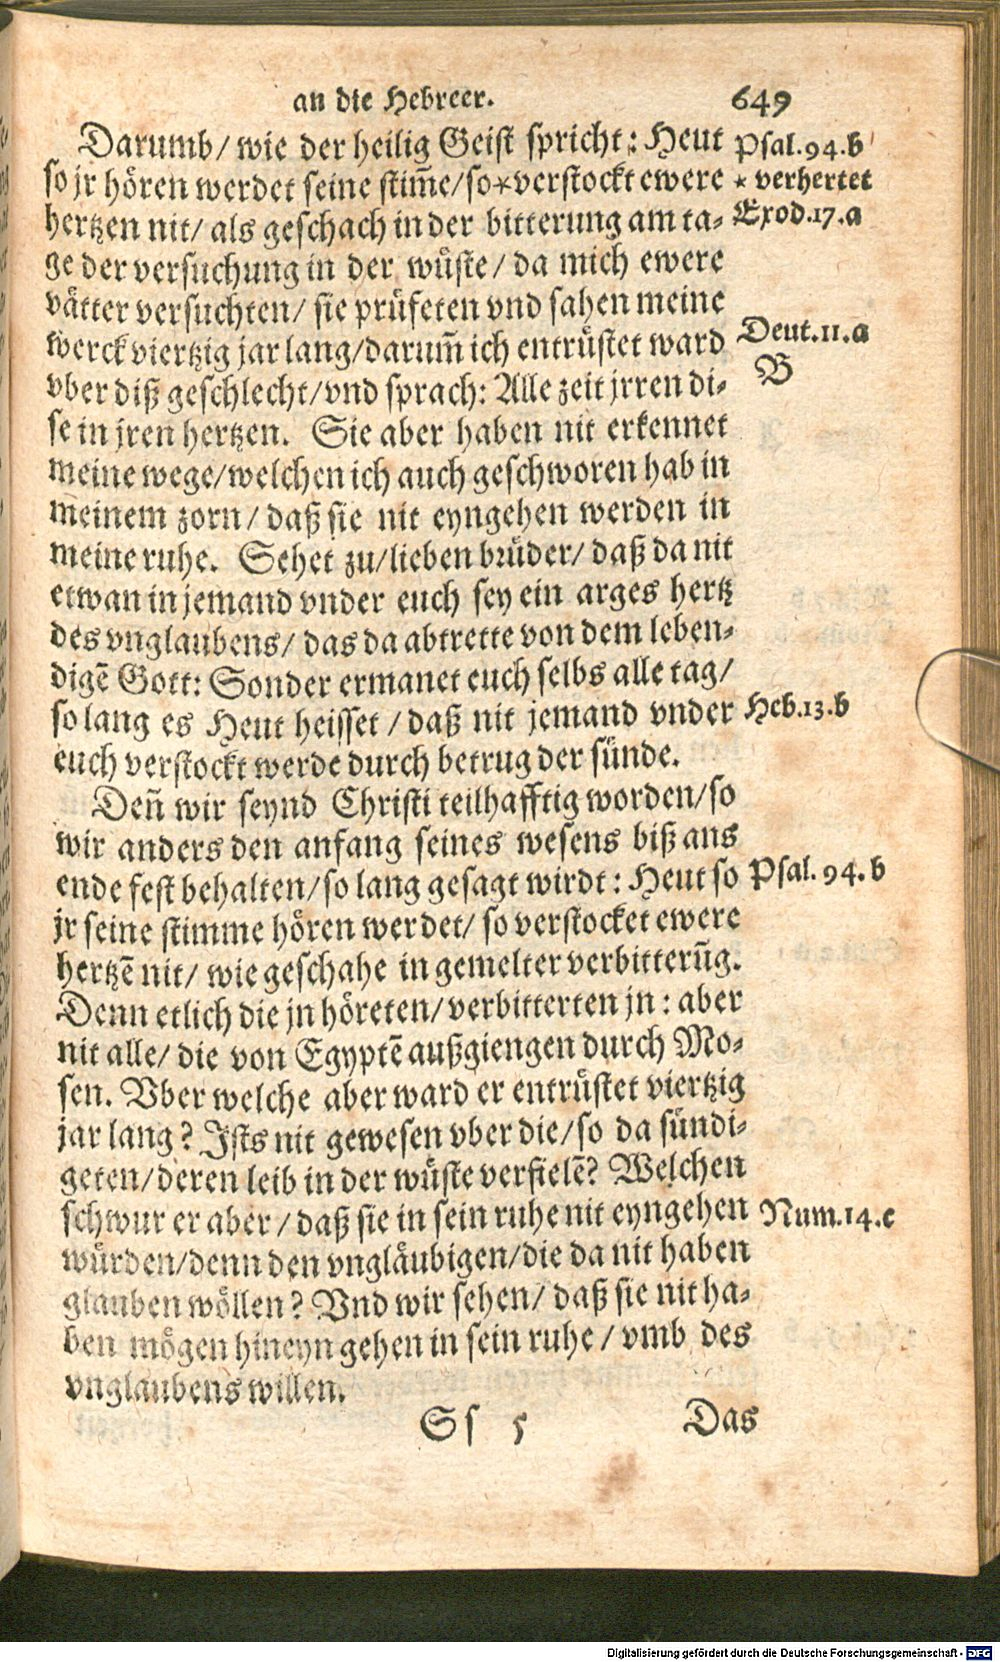 an die Hebreer. 649
Darumb/ wie der heilig Geist spricht: Heut
Psal.94.b
so jr hören werdet seine stim̃e/so*verstockt ewere
* verhertet
hertzen nit/ als geschach in der bitterung am ta-
Exod.17.a
ge der versuchung in der wüste/ da mich ewere
vätter versuchten/ sie prüfeten vnd sahen meine
werck viertzig jar lang/darum̃ ich entrüstet ward
Deut.11.a
vber diß geschlecht/vnd sprach: Alle zeit jrren di-
B
se in jren hertzen. Sie aber haben nit erkennet
meine wege/welchen ich auch geschworen hab in
meinem zorn/ daß sie nit eyngehen werden in
meine ruhe. Sehet zu/lieben brüder/ daß da nit
etwan in jemand vnder euch sey ein arges hertz
des vnglaubens/ das da abtrette von dem leben-
digẽ Gott: Sonder ermanet euch selbs alle tag/
so lang es Heut heisset/ daß nit jemand vnder
Heb.13.b
euch verstockt werde durch betrug der sünde.
Den̄ wir seynd Christi teilhafftig worden/so
wir anders den anfang seines wesens biß ans
ende fest behalten/so lang gesagt wirdt: Heut so
Psal. 94. b
jr seine stimme hören werdet/ so verstocket ewere
hertzẽ nit/ wie geschahe in gemelter verbitterũg.
Denn etlich die jn höreten/verbitterten jn: aber
nit alle/ die von Egyptẽ außgiengen durch Mo-
sen. Vber welche aber ward er entrüstet viertzig
jar lang? Ists nit gewesen vber die/so da sündi-
geten/deren leib in der wüste verfielẽ? Welchen
schwur er aber/ daß sie in sein ruhe nit eyngehen
Num.14.c
würden/denn den vngläubigen/die da nit haben
glauben wöllen? Vnd wir sehen/ daß sie nit ha-
ben mögen hineyn gehen in sein ruhe/ vmb des
vnglaubens willen.
Ss 5 Das
Digitalisierung gefördert durch die Deutsche Forschungsgemeinschaft - DFG